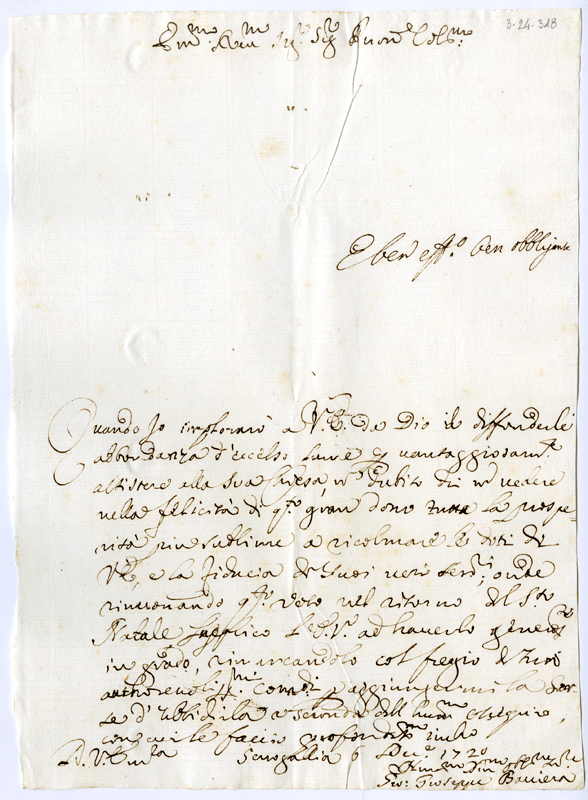 3-24-318
Em.mo Rev.mo Sig.r Sig.r Pron.e Col.mo
E ben eff.o ben obbligante
Quando Io imploraro a V. E. da Dio il diffonderle
abbondanza d'eccelso lume p vantaggiosam.te
assistere alla sua Chiesa, n dubito di n vedere
nella felicità di q.to gran dono tutta la prospe-
rità più sublime a ricolmare le doti di
V. E., e la fiducia de suoi veri ser.ri; onde
rinuovando q.to voto nel ritorno del S.to
Natale supplico l'E. V. ad haverlo generos.te
in grado, rimarcandolo col fregio de suoi
authorevoliss.mi Com.di p aggiungermi la sor-
te d'ubbidirla a seconda dell' hum.mo ossequio,
con cui le faccio profondiss.mo inchino
D. V. Em.za Senogallia 6 Dec.e 1720
Gio: Giuseppe Baviera